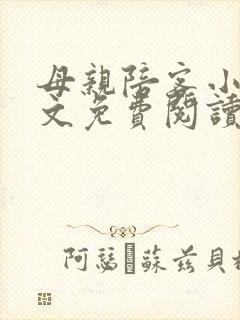 母親陪客小
文免費閱讀
阿瑟·蘇茲貝